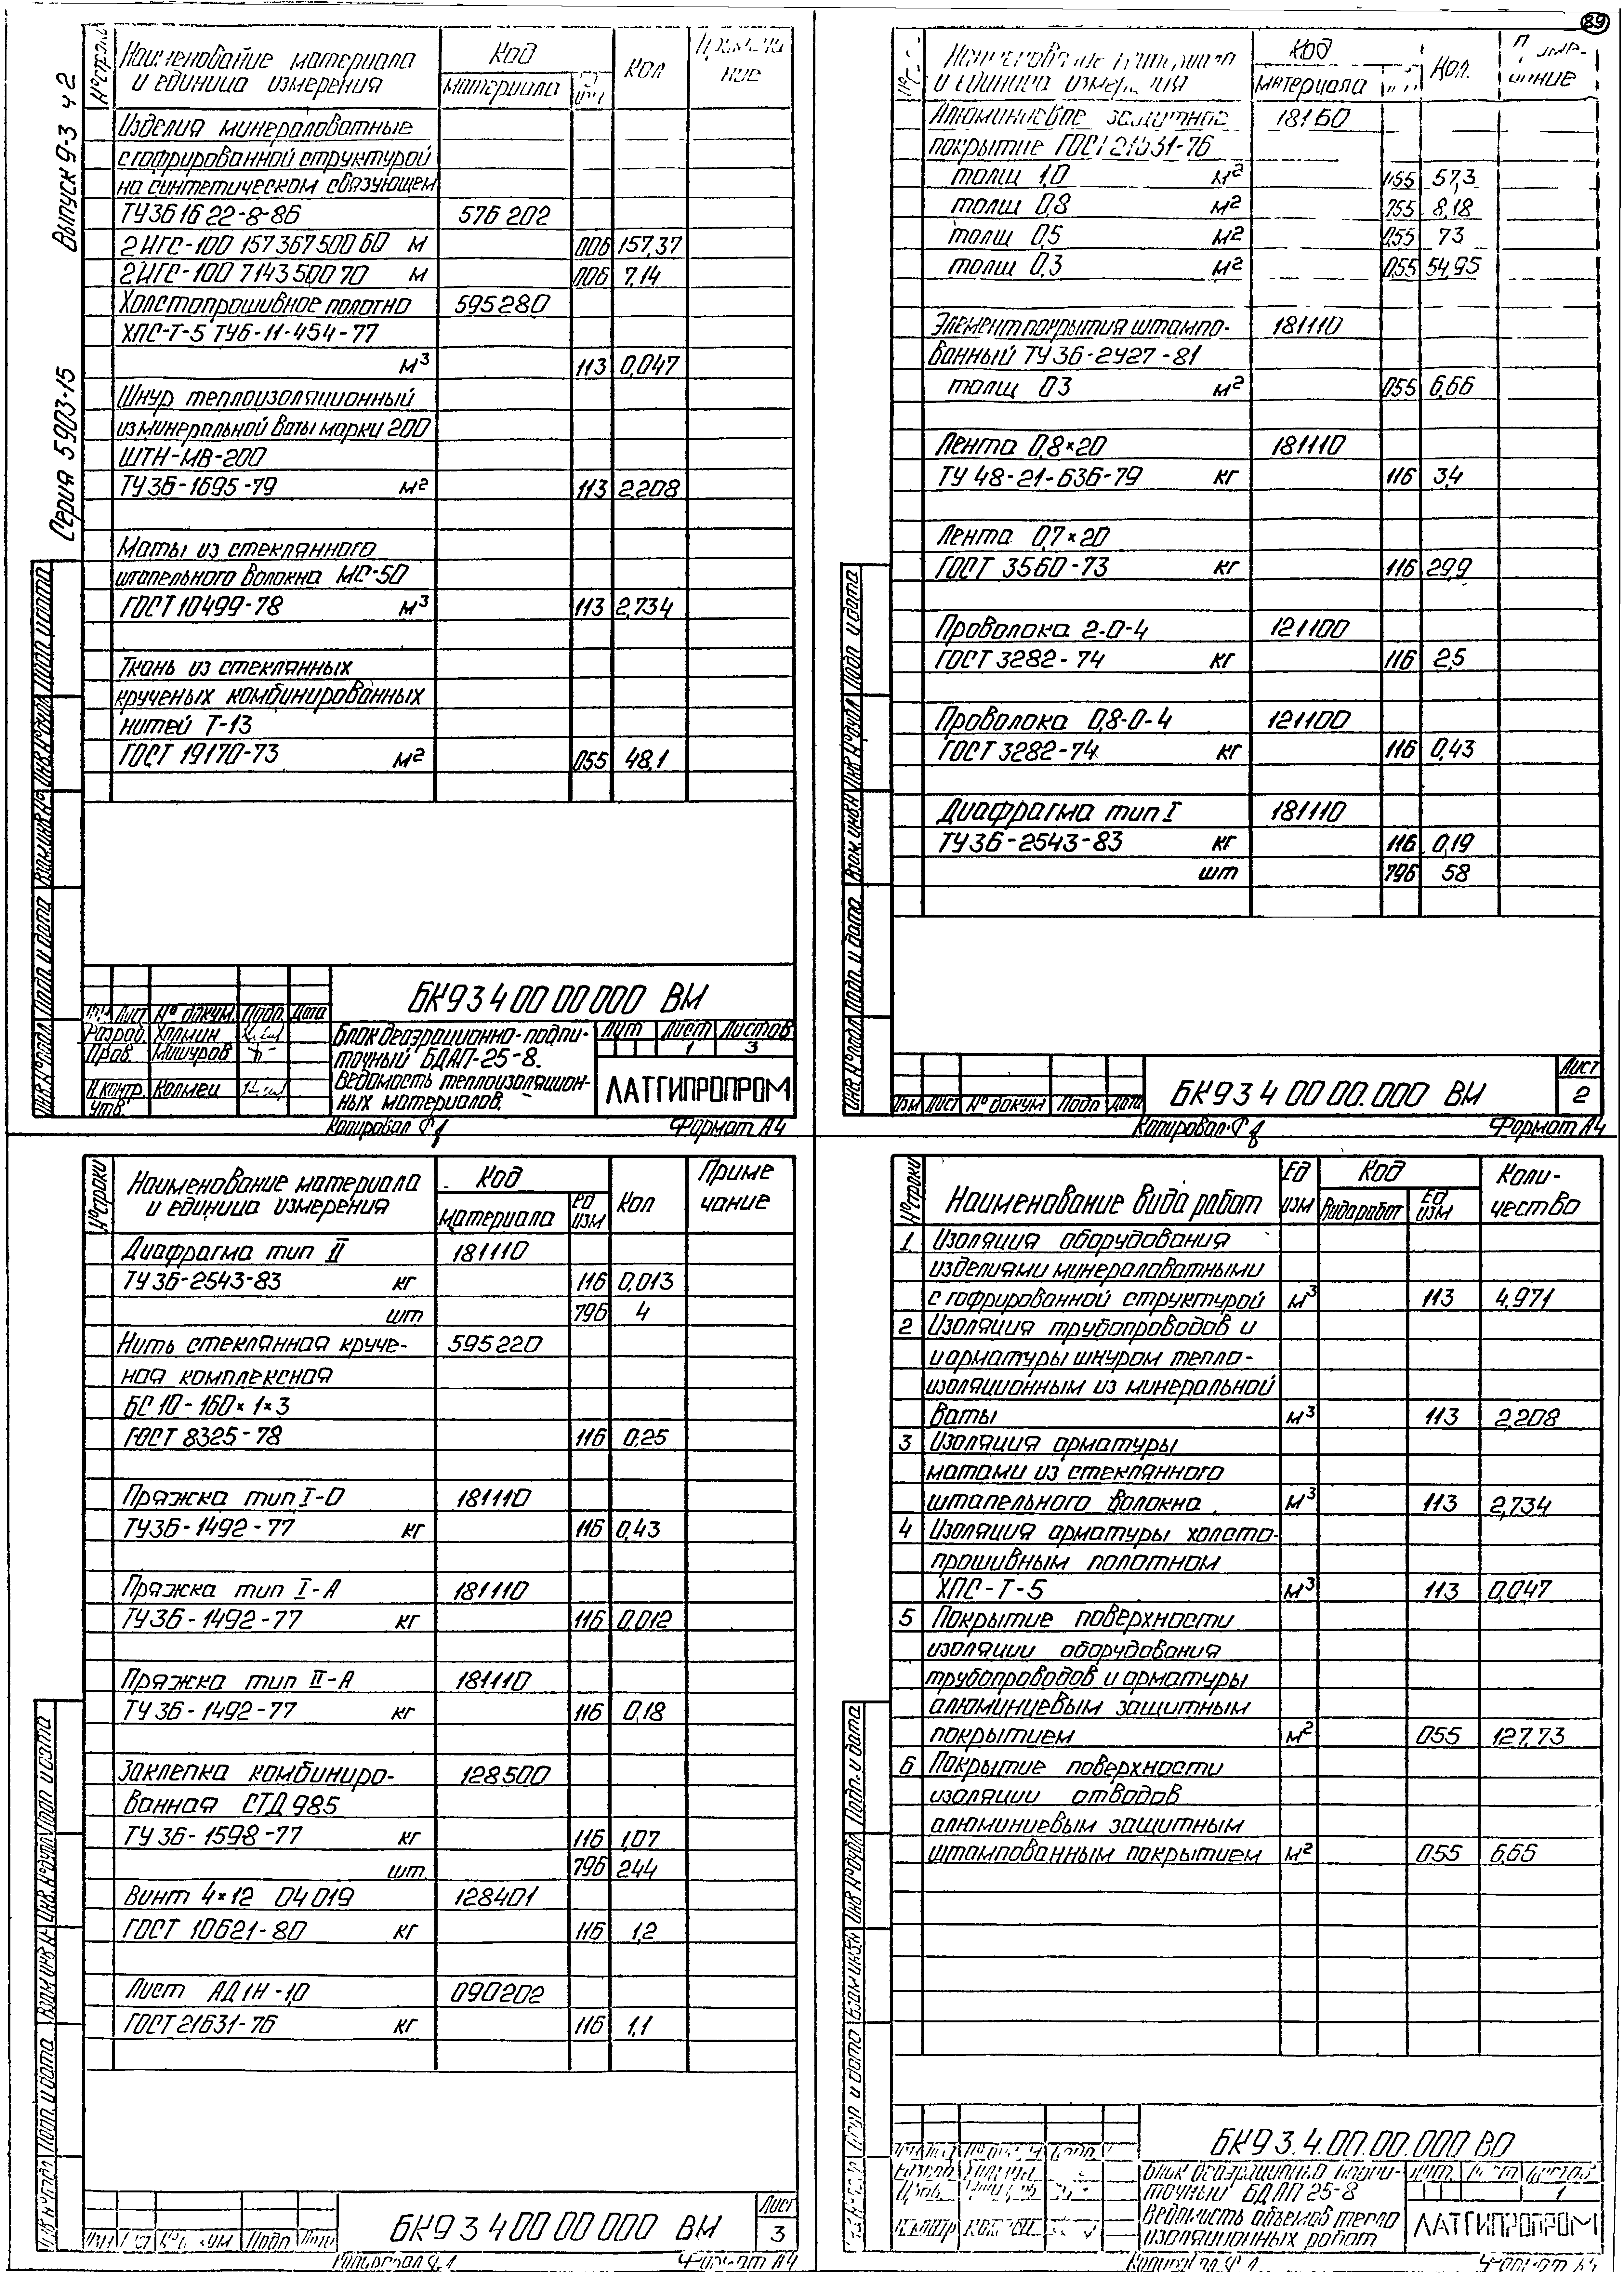 89
Серия 5903-15 Выпуск 9-3 ч 2
№ строки Наименование материала и единица измерения Код материала Кол Примечание
Изделия минераловатные
с гофрированной структурой
на синтетическом связующем
ТУ36 16 22-8-86 576 202
2ИГС-100 157 367 500 60 м 006 157,37
2ИГС-100 7143 500 70 м 006 7,14
Холстопрошивное полотно 595280
ХПС-Т-5 ТУ6-11-454-77
м³ 113 0,047
Шнур теплоизоляционный
из минеральной ваты марки 200
ШТН-МВ-200
ТУ36-1695-79 м² 113 2,208
Маты из стеклянного
штапельного волокна МС-50
ГОСТ 10499-78 м³ 113 2,734
Ткань из стеклянных
крученых комбинированных
нитей Т-13
ГОСТ 19170-73 м² 055 48,1
БК93 4 00 00 000 ВМ
Изм Лист № докум. Подп. Дата
Разраб. Холмин
Пров. Мишуров
Н.контр. Колмец
Утв.
Блок деаэрационно-подпи-
точный БДАП-25-8.
Ведомость теплоизоляцион-
ных материалов.
Лит Лист Листов
1 3
ЛАТГИПРОПРОМ
Инв № подл Подп. и дата Взам инв № Инв № дубл Подп и дата
Копировал Формат А4
Наименование материала и единица измерения Код материала Кол. Примечание
Алюминиевое защитное 18160
покрытие ГОСТ 21631-76
толщ 1,0 м² 055 57,3
толщ 0,8 м² 055 8,18
толщ 0,5 м² 055 73
толщ 0,3 м² 055 54,95
Элемент покрытия штампо- 181110
ванный ТУ 36-2427-81
толщ 0,3 м² 055 6,66
Лента 0,8×20 181110
ТУ 48-21-636-79 кг 116 3,4
Лента 0,7×20
ГОСТ 3560-73 кг 116 29,9
Проволока 2-0-4 121100
ГОСТ 3282-74 кг 116 2,5
Проволока 0,8-0-4 121100
ГОСТ 3282-74 кг 116 0,43
Диафрагма тип I 181110
ТУ36-2543-83 кг 116 0,19
шт 796 58
Изм Лист № докум Подп Дата
БК93 4 00 00.000 ВМ
Лист
2
Инв № подл Подп. и дата Взам. инв № Инв № дубл Подп и дата
Копировал Формат А4
№ строки Наименование материала и единица измерения Код материала Ед изм Кол Примечание
Диафрагма тип II 181110
ТУ 36-2543-83 кг 116 0,013
шт 796 4
Нить стеклянная круче- 595220
ная комплексная
БС 10-160×1×3
ГОСТ 8325-78 116 0,25
Пряжка тип I-О 181110
ТУ36-1492-77 кг 116 0,43
Пряжка тип I-А 181110
ТУ36-1492-77 кг 116 0,012
Пряжка тип II-А 181110
ТУ 36-1492-77 кг 116 0,18
Заклепка комбиниро- 128500
ванная СТД 985
ТУ 36-1598-77 кг 116 1,07
шт. 796 244
Винт 4×12 04 019 128401
ГОСТ 10621-80 кг 116 1,2
Лист АД1Н-1,0 090202
ГОСТ 21631-76 кг 116 1,1
БК93 4 00 00 000 ВМ
Лист
3
Подп. и дата Взам инв № Инв. № дубл Подп и дата
№ строки Наименование вида работ Ед изм Код вида работ Ед изм Количество
1 Изоляция оборудования
изделиями минераловатными
с гофрированной структурой м³ 113 4,971
2 Изоляция трубопроводов и
и арматуры шнуром тепло-
изоляционным из минеральной
ваты м³ 113 2,208
3 Изоляция арматуры
матами из стеклянного
штапельного волокна м³ 113 2,734
4 Изоляция арматуры холсто-
прошивным полотном
ХПС-Т-5 м³ 113 0,047
5 Покрытие поверхности
изоляции оборудования
трубопроводов и арматуры
алюминиевым защитным
покрытием м² 055 127,73
6 Покрытие поверхности
изоляции отводов
алюминиевым защитным
штампованным покрытием м² 055 6,66
БК93.4.00.00.000 ВО
Блок деаэрационно подпи-
точный БДАП 25-8
Ведомость объемов тепло
изоляционных работ
1
ЛАТГИПРОПРОМ